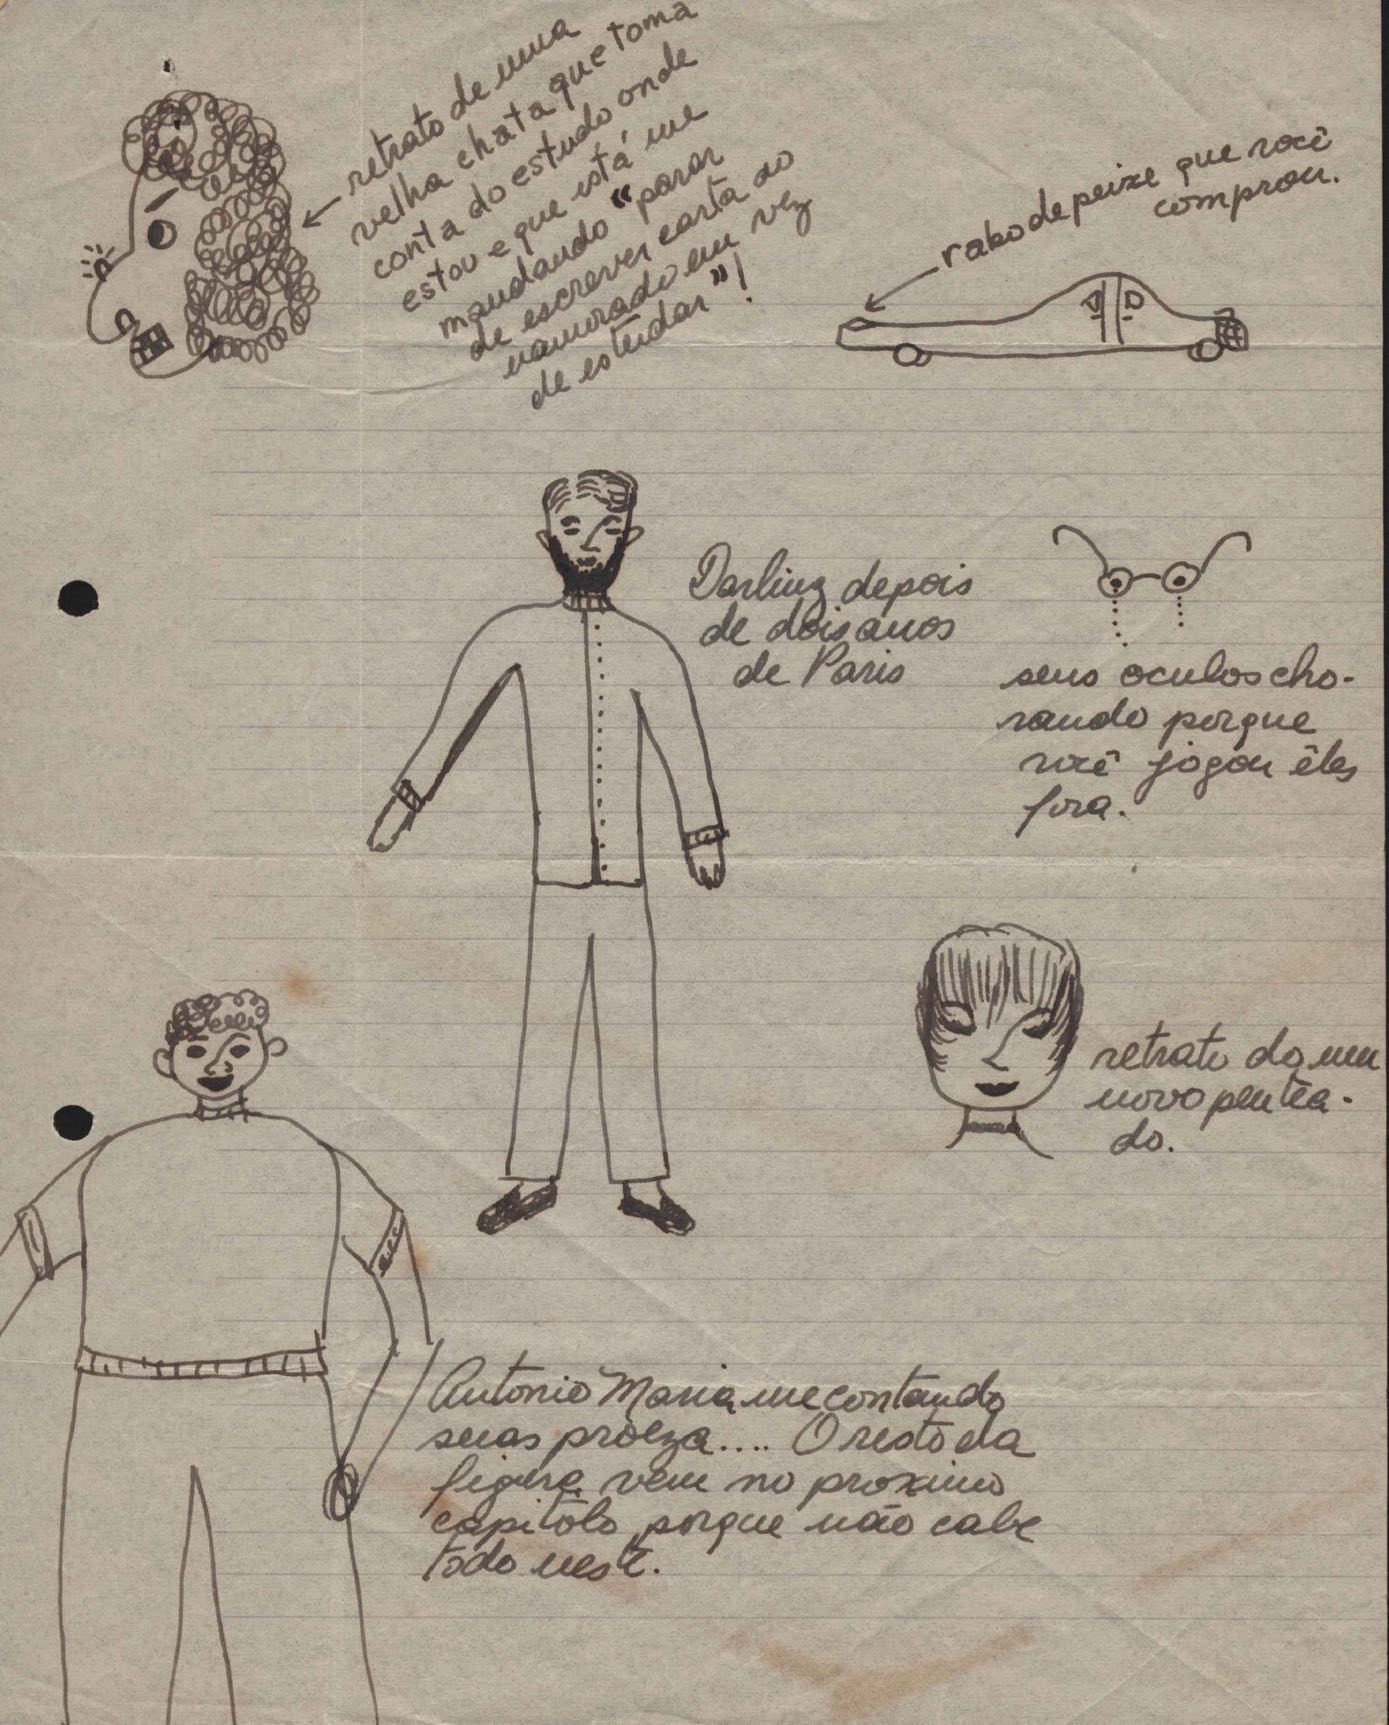 retrato de uma
velha chata que toma
conta do estudo onde
estou e que está me
mandando "parar
de escrever carta ao
namorado em vez
de estudar"!
rabo de peixe que você
comprou.
Darling depois
de dois anos
de Paris
seus oculos cho-
rando porque
você jogou êles
fora.
retrato do meu
novo pentea-
do.
Antonio Maria me contando
suas proeza.... O resto da
figura vem no proximo
capitolo porque não cabe
todo neste.